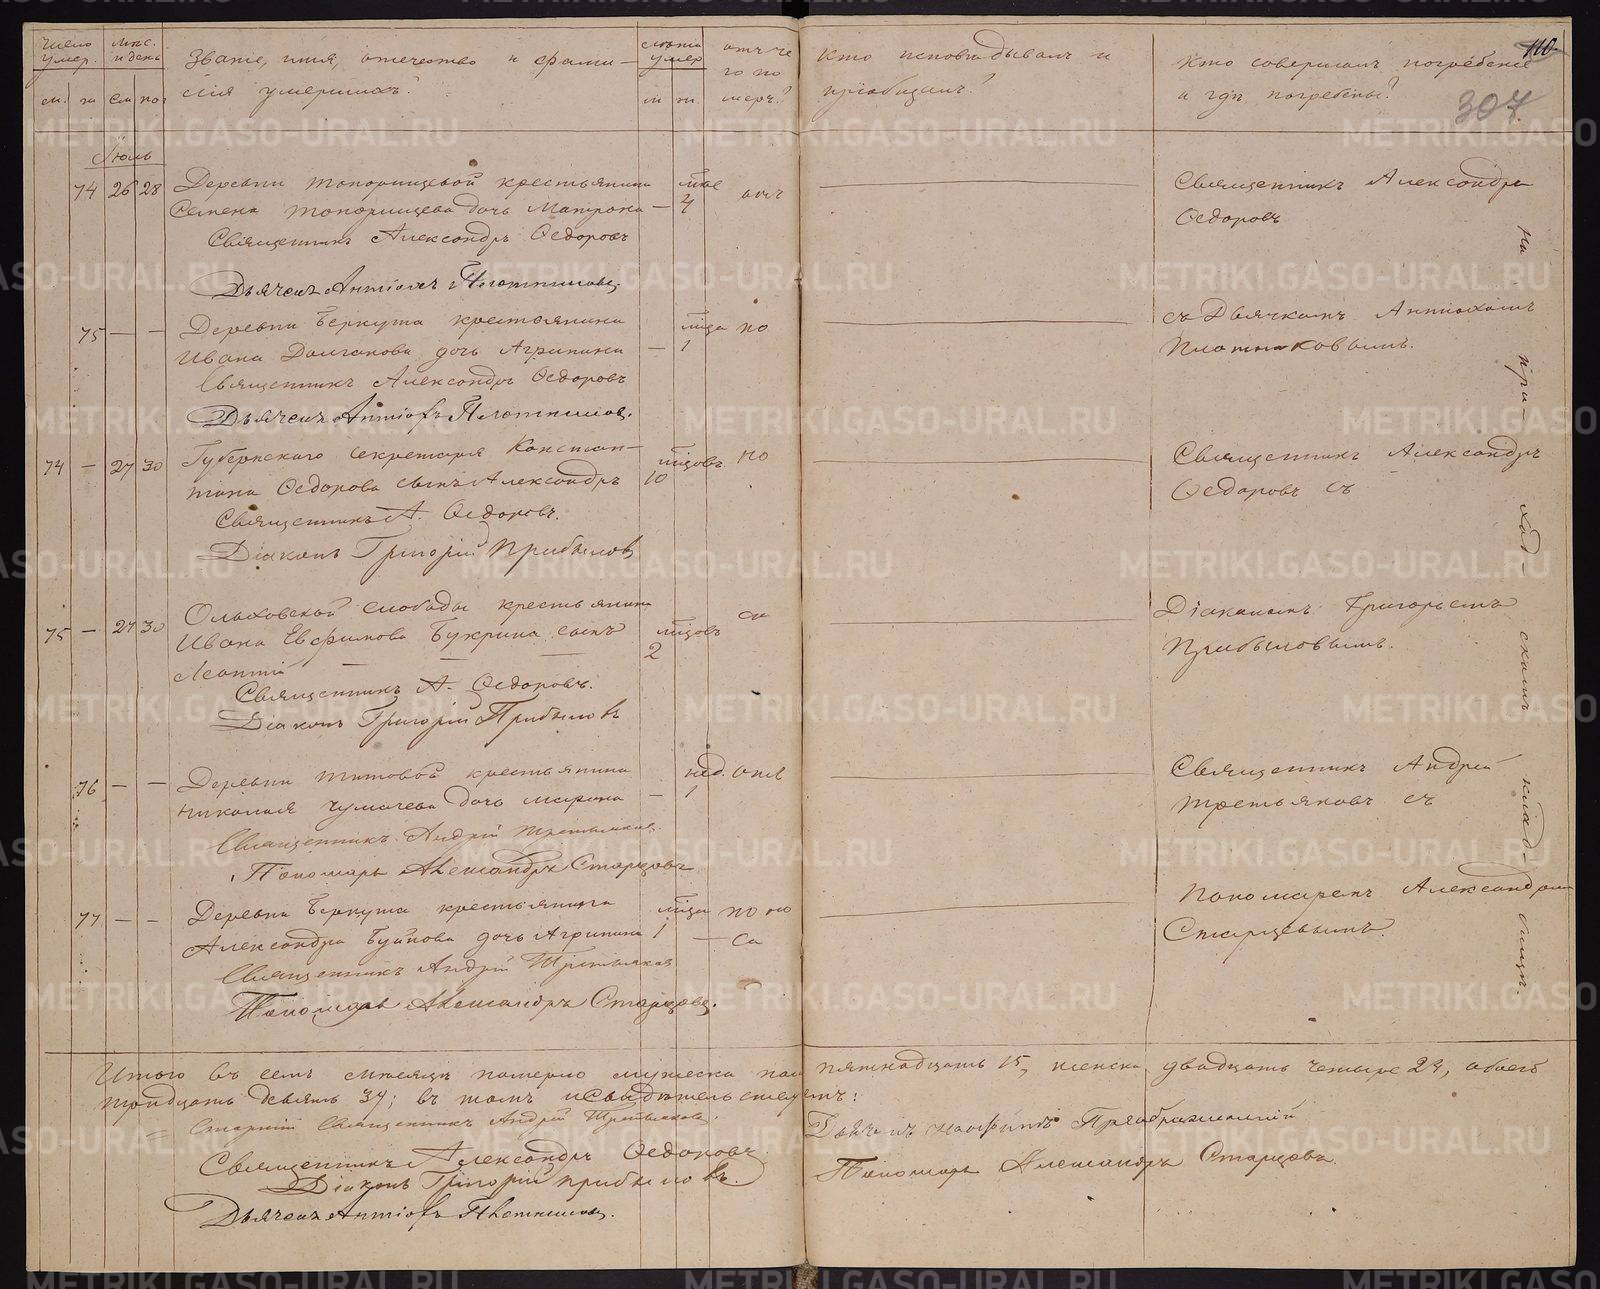 Число умер.
Мѣс. и день
Званіе, имя, отечество и фами-
лія умершихъ?
Лѣта умер
отъ че
го по
меръ?
Кто исповѣдывалъ и
пріобщалъ?
Кто совершалъ погребеніе
и гдѣ погребены?
110
307
м. ж. см. пог.
м. ж.
Іюль
74 26 28 Деревни Топорищевой крестьянина
Семена Топорищева дочь Матрона — 4
Священникъ Александръ Ѳедоровъ
Священникъ Александръ
Ѳедоровъ
Дьячекъ Антіохъ Плотниковъ
75 — — Деревни Беркута крестьянина
Ивана Долганова дочь Агрипина — 1
Священникъ Александръ Ѳедоровъ
съ Дьячкомъ Антіохомъ
Плотниковымъ.
Дьячекъ Антіохъ Плотниковъ.
74 — 27 30 Губернскаго секретаря Констан-
тина Ѳедорова сынъ Александръ 10
Священникъ А. Ѳедоровъ.
Священникъ Александръ
Ѳедоровъ съ
Діаконъ Григорій Прибыловъ
75 — 27 30 Ольховской слободы крестьянина
Ивана Евфимова Букрина сынъ 2
Леонтій — — —
Священникъ А. Ѳедоровъ.
Діаконъ Григорій Прибыловъ
Діакономъ Григорьемъ
Прибыловымъ.
76 — — Деревни Титовой крестьянина нед.
Николая Чумачева дочь — 1
Священникъ Андрей Третьяковъ
Пономарь Александръ Старцовъ
Священникъ Андрей
Третьяковъ съ
77 — — Деревни Беркута крестьянина
Александра Буйнова дочь Агрипина 1 —
Священникъ Андрей Третьяковъ
Пономарь Александръ Старцовъ.
Пономаремъ Александромъ
Старцевымъ.
на при- ход- скомъ кладбищѣ.
Итого въ семъ мѣсяцѣ померло мужеска пола пятнадцать 15, женска двадцать четыре 24, обоего
тридцать девять 39; въ томъ и свидѣтельствуемъ:
Старшій Священникъ Андрей Третьяковъ.
Священникъ Александръ Ѳедоровъ
Діаконъ Григорій Прибыловъ.
Дьячекъ Антіохъ Плотниковъ.
Дьячекъ Преображенскій
Пономарь Александръ Старцовъ.
METRIKI.GASO-URAL.RU